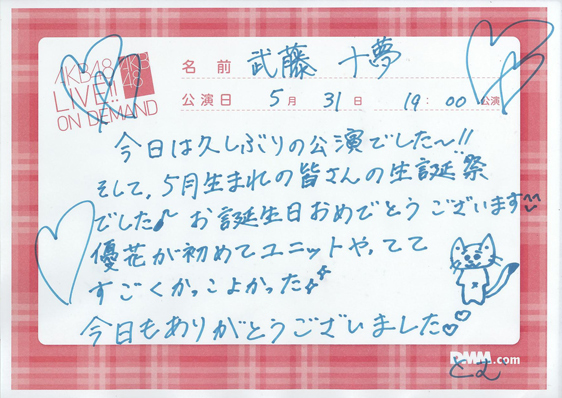 AKB48
LIVE!!
ON DEMAND
AKB
48
名前 武藤 十夢
公演日 5月 31日 19:00 公演
今日は久しぶりの公演でした〜!!
そして、5月生まれの皆さんの生誕祭
でした♪ お誕生日おめでとうございます
優花が初めてユニットやってて
すごくかっこよかった
今日もありがとうございました♡♡
DMM.com
とむ